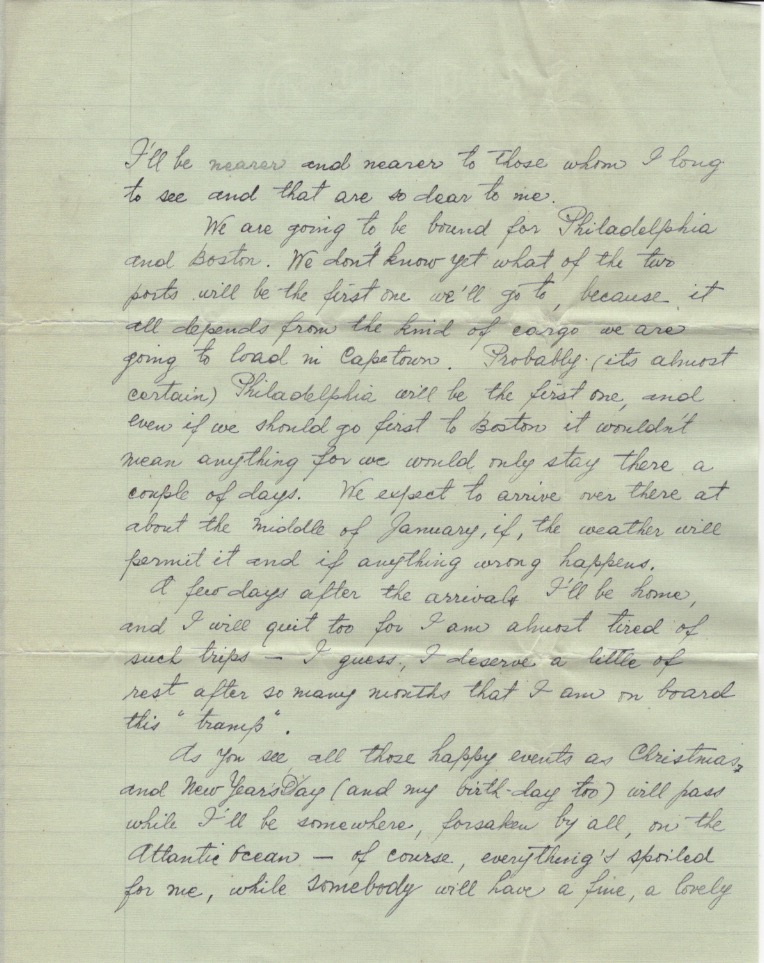 I'll be nearer and nearer to those whom I long
to see and that are so dear to me.
We are going to be bound for Philadelphia
and Boston. We don't know yet what of the two
ports will be the first one we'll go to, because it
all depends from the kind of cargo we are
going to load in Capetown. Probably (its almost
certain) Philadelphia will be the first one, and
even if we should go first to Boston it wouldn't
mean anything for we would only stay there a
couple of days. We expect to arrive over there at
about the middle of January, if, the weather will
permit it and if anything wrong happens.
A few days after the arrivals I'll be home,
and I will quit too for I am almost tired of
such trips — I guess, I deserve a little of
rest after so many months that I am on board
this "tramp".
As you see all those happy events as Christmas,
and New Year's Day (and my birth-day too) will pass
while I'll be somewhere, forsaken by all, on the
Atlantic Ocean — of course, everything's spoiled
for me, while somebody will have a fine, a lovely